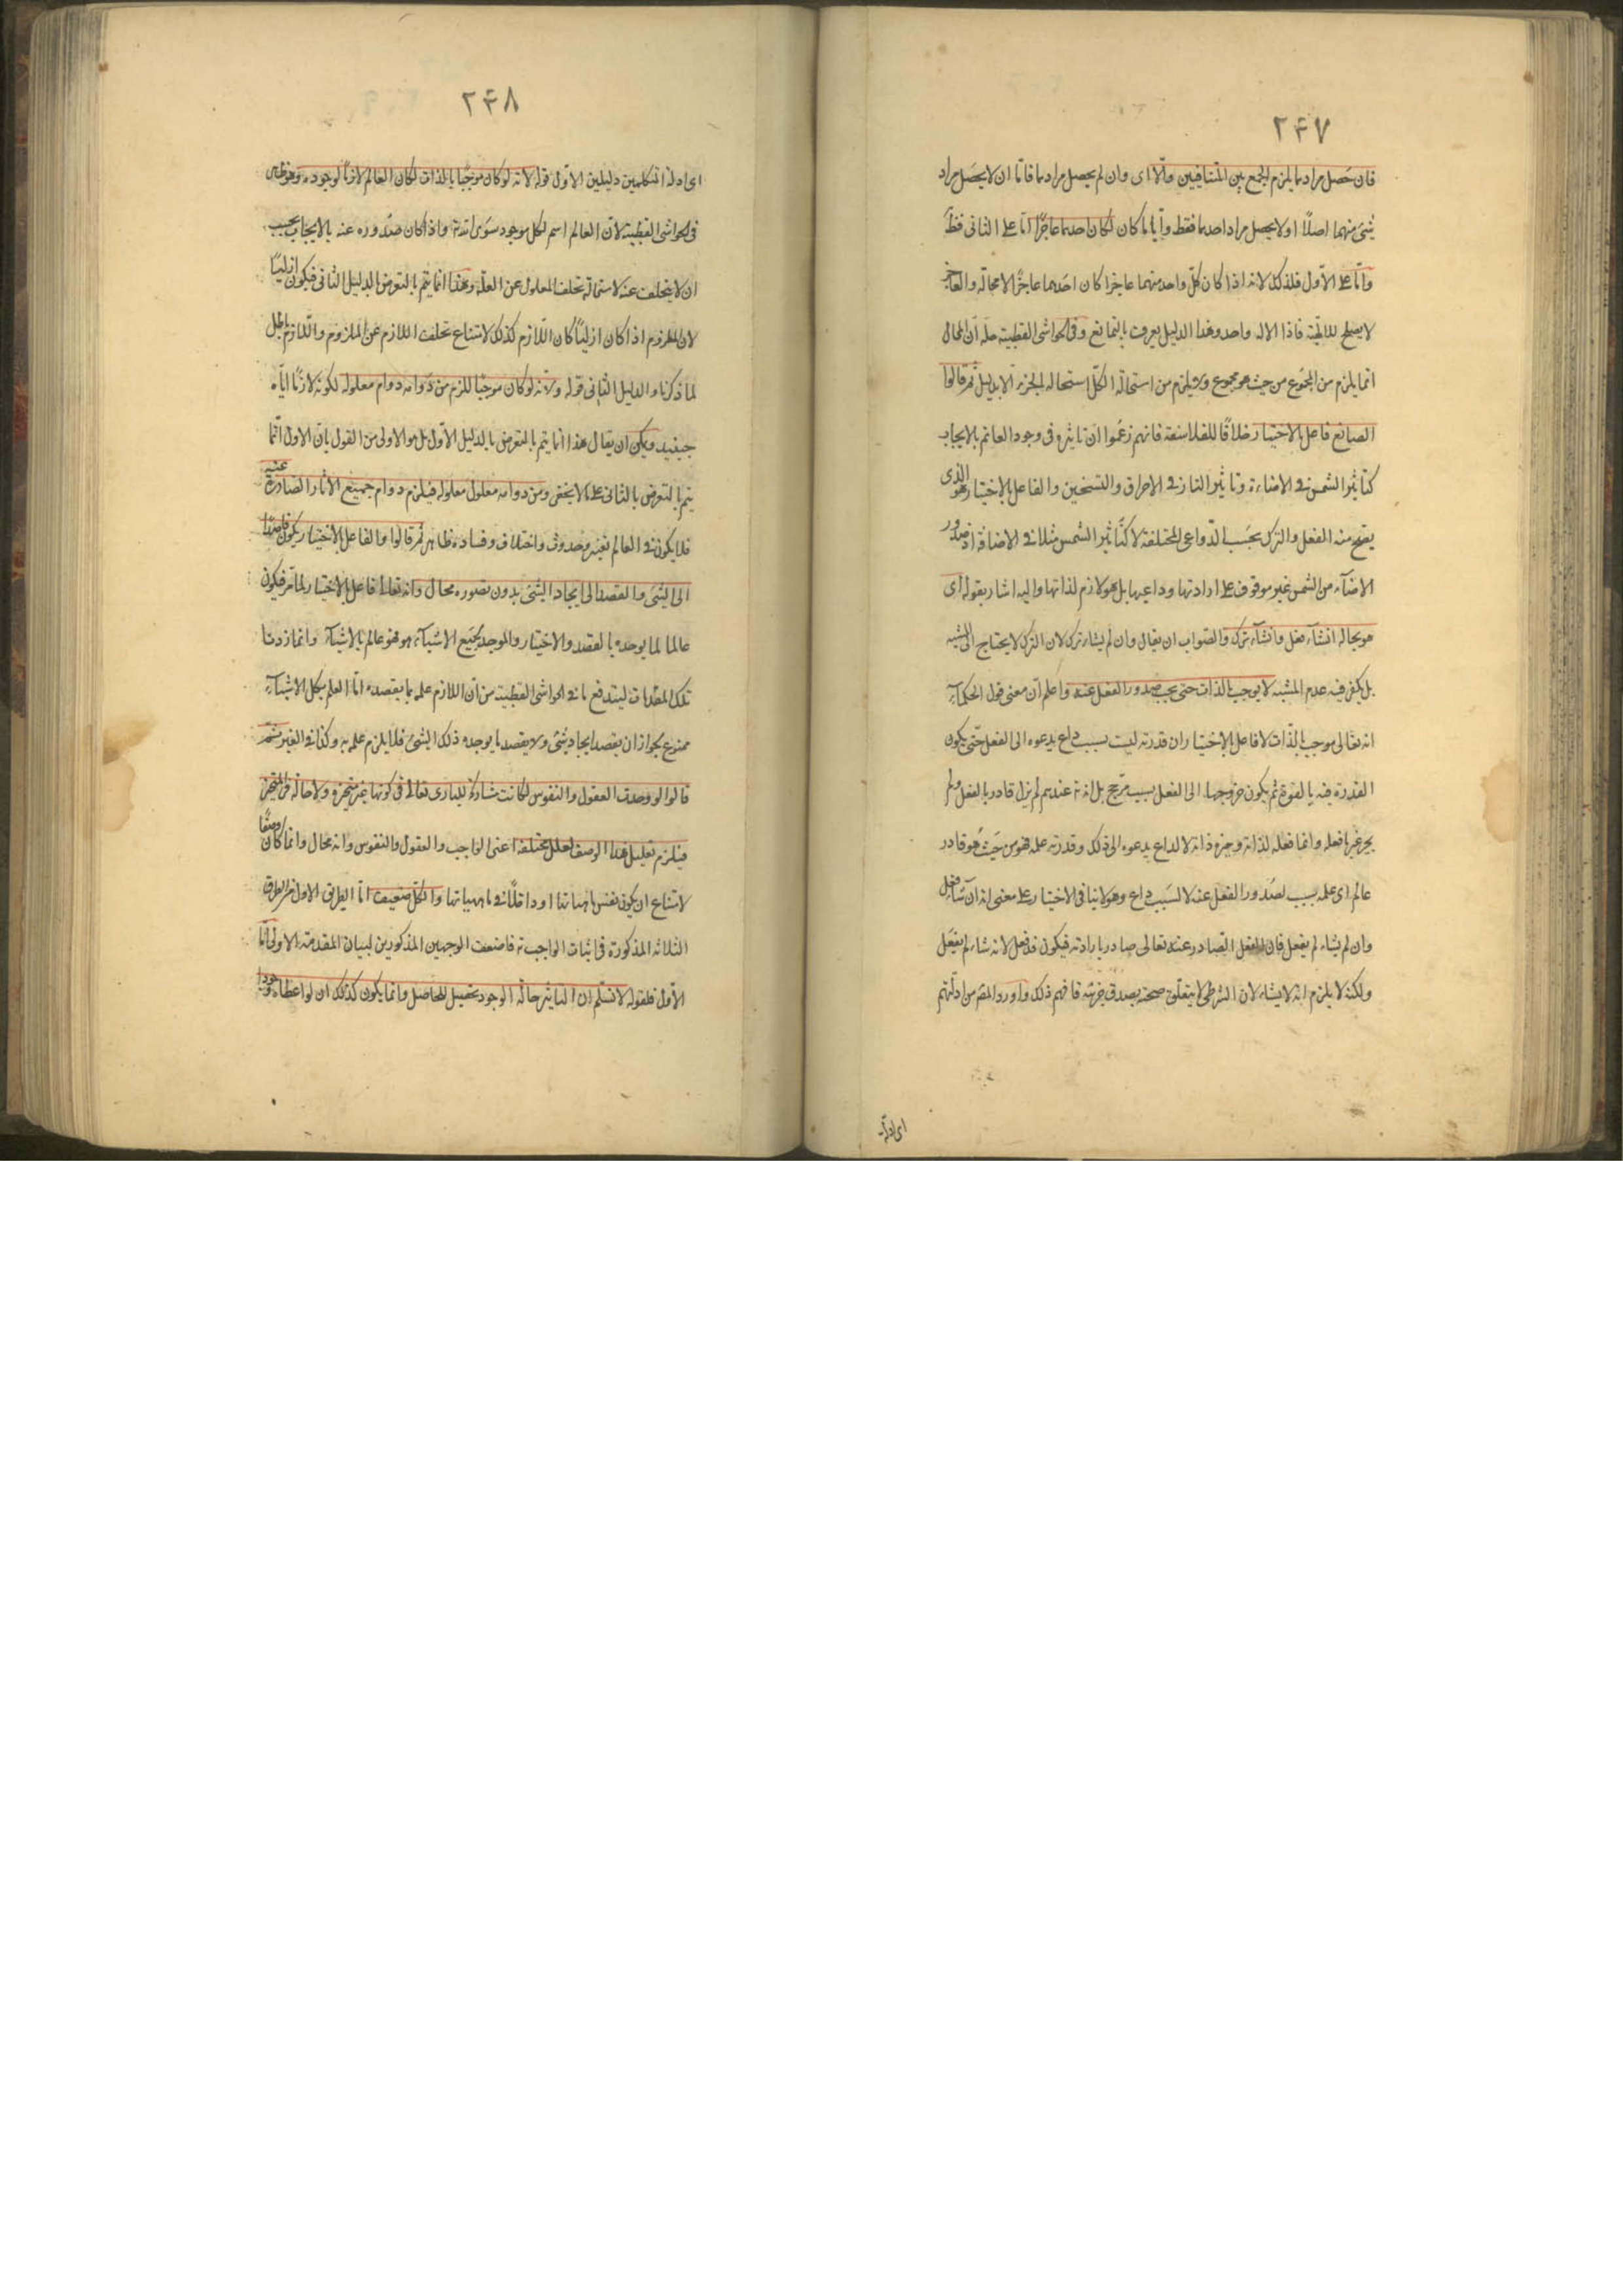 ٢۴٧
فان حصل مرادهما يلزم الجمع بين المتنافيين والّا اى وان لم يحصل مرادهما فامّا ان لا يحصل مراد
شىء منهما اصلًا او لا يحصل مراد احدهما فقط وأيا ما كان لكان احدهما عاجزًا امّا على الثانى فظ
وامّا على الاوّل فلذلك لانه اذا كان كلّ واحد منهما عاجزا كان احدهما عاجزًا لا محالة والعاجز
لا يصلح للالٰهيّة فاذا الاله واحد وهذا الدليل يعرف بالتمانع وفى الحواشى القطبية حله ان المحال
انما يلزم من المجموع من حيث هو مجموع ولا يلزم من استحالة الكلّ استحالة الجزء الّا بدليل ثم قالوا
الصانع فاعل بالاختيار خلافًا للفلاسفة فانهم زعموا انّ تاثيره فى وجود العالم بالايجاب
كتاثير الشمس فى الاضاءة وتاثير النار فى الاحراق والتسخين والفاعل بالاختيار هو الذى
يصح منه الفعل والترك بحسب الدّواعى المختلفة لا كتاثير الشمس مثلا فى الاضاءة اذ صدور
الاضاءة من الشمس غير موقوف على ارادتها وداعيها بل هو لازم لذاتها واليه اشار بقوله اى
هو بحاله ان شاء فعل وان شاء ترك والصواب ان يقال وان لم يشاء ترك لان الترك لا يحتاج الى المشية
بل يكفى فيه عدم المشية لا يوجب بالذات حتى يجب صدور الفعل عنه واعلم انّ معنى قول الحكماء
انه تعالى موجب بالذات لا فاعل بالاختيار ان قدرته ليست بسبب داع يدعوه الى الفعل حتّى يكون
القدرة فيه بالقوة ثم يكون خروجها الى الفعل بسبب مرجّح بل انه عندهم لم يزل قادر بالفعل ولم
يجز غير ما فعله وانما فعله لذاته وخيرة ذاته لا لداع يدعوه الى ذلك وقدرته علمه فهو من حيث هو قادر
عالم اى علمه سبب لصدور الفعل عنه لا لسبب داع وهو لا ينافى الاختيار على معنى انه ان شاء فعل
وان لم يشاء لم يفعل فان الفعل الصادر عنه تعالى صادر بارادته فيكون قد فعل لانه شاء لم يفعل
ولكنه لا يلزم انه لا يشاء لان الشرطى لا يتعلق صحته بصدق جزئيه فافهم ذلك واورد المص من ادلّتهم
اى ادلّة
٢۴٨
اى ادلة المتكلمين دليلين الاوّل قوله لانه لو كان موجبًا بالذات لكان العالم لازمًا لوجوده وهو ظاهر
فى الحواشى القطبية لانّ العالم اسم لكل موجود سوى الله واذا كان صدوره عنه بالايجاب يجب
ان لا يتخلف عنه لاستحالة تخلف المعلول عن العلّة وهذا انما يتم بالتعرض للدليل الثانى فيكون ازليًا
لان الملزوم اذا كان ازليًا كان اللّازم كذلك لامتناع تخلف اللازم عن الملزوم واللّازم باطل
لما ذكرنا والدليل الثانى قوله ولانه لو كان موجبًا للزم من دوامه دوام معلوله لكونه لازمًا ايّاه
حينئذ ويمكن ان يقال هذا انما يتم بالتعرض بالدليل الاوّل بل هو الاولى من القول بانّ الاول انّما
يتم بالتعرض بالثانى على ما لا يخفى ومن دوامه معلول معلوله فيلزم دوام جميع الآثار الصادرة عنه
فلا يكون فى العالم تغير وحدوث واختلاف وفساده ظاهر ثم قالوا والفاعل بالاختيار يكون قاصدًا
الى الشىء والقصد الى ايجاد الشىء بدون تصوره محال وانه تعالى فاعل بالاختيار لما مر فيكون
عالما لما يوجده بالقصد والاختيار والموجد لجميع الاشياء هو فهو عالم بالاشياء وانما زدنا
تلك المقدمات ليندفع ما فى الحواشى القطبية من انّ اللازم علمه بما يقصده امّا العلم بكل الاشياء
ممنوع لجواز ان يقصد ايجاد شىء ولا يقصد ما يوجده ذلك الشىء فلا يلزم علمه به وكذا فى الغير ثم
قالوا لو وجدت العقول والنفوس لكانت مشاركة للبارى تعالى فى كونها غير متحيزة ولا حالة فى المتحيز
فيلزم تعليل هذا الوصف لعلل مختلفة اعنى الواجب والعقول والنفوس وانه محال وانما كان وصفًا
لامتناع ان يكون نفس ماهياتها او داخلًا فى ماهياتها والكل ضعيف امّا الطريق الاول من الطرق
الثلاثه المذكورة فى اثبات الواجب فلضعف الوجهين المذكورين لبيان المقدمة الاولى امّا
الاوّل فلقوله لا نسلّم ان التاثير حالة الوجود تحصيل للحاصل وانما يكون كذلك ان لو اعطاه وجودا